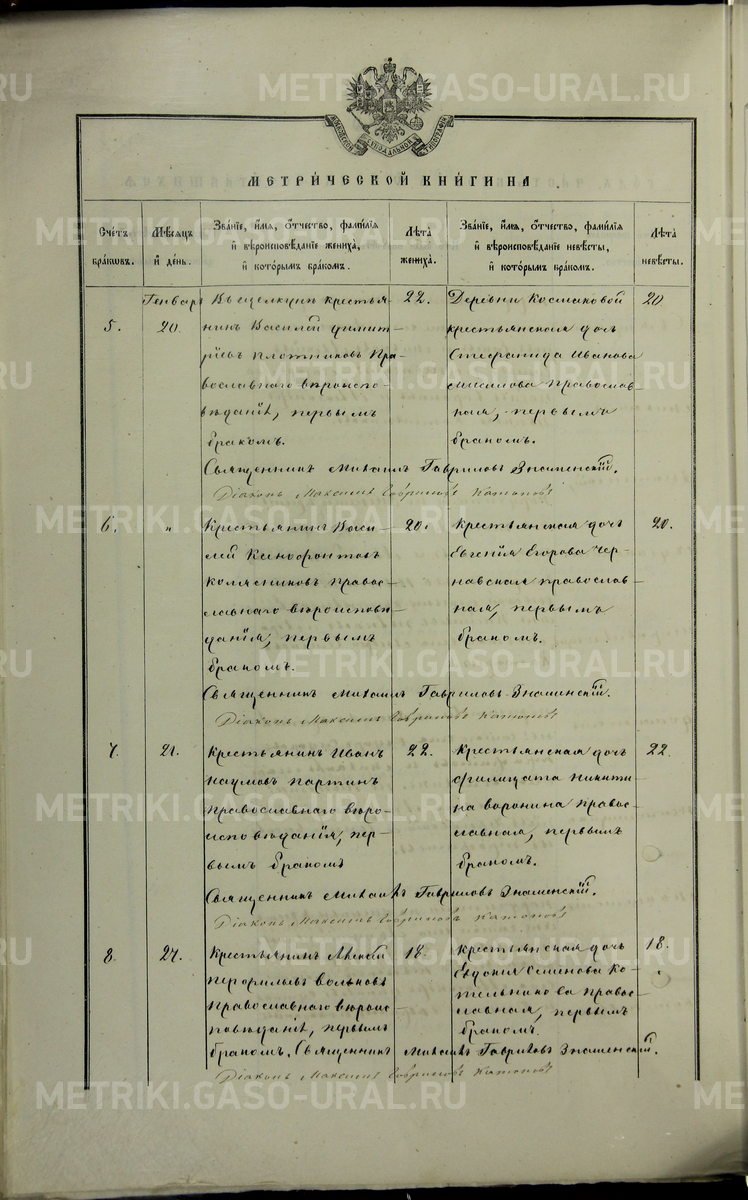 METRIKI.GASO-URAL.RU
МОСКОВСКОЙ СѴНОДАЛЬНОЙ ТИПОГРАФІИ
МЕТРИ́ЧЕСКОЙ КНИ́ГИ НА
Сче́тъ бра́ковъ.
Мѣ́сяцъ и҆ де́нь.
Зва́нїе, и҆́мя, ѻ҆́тчество, фами́лїя и҆ вѣроисповѣ́данїе жениха̀, и҆ кото́рымъ бра́комъ.
Лѣ́та жениха̀.
Зва́нїе, и҆́мя, ѻ҆́тчество, фами́лїя и҆ вѣроисповѣ́данїе невѣ́сты, и҆ кото́рымъ бра́комъ.
Лѣ́та невѣ́сты.
5.
Генварь
20.
крестья-
нинъ Василій Димит-
ріевъ Плотниковъ Пра-
вославнаго вѣроиспо-
вѣданія, первымъ
бракомъ.
22.
Деревни Космаковой
крестьянская дочь
Стефанида Иванова
православ-
ная, первымъ
бракомъ.
20
Священникъ Михаилъ Гавриловъ Знаменскій.
Діаконъ Максимъ Гавриловъ
6.
"
Крестьянинъ Васи-
лій Ксенофонтовъ
Колясниковъ право-
славнаго вѣроисповѣ-
данія, первымъ
бракомъ.
20.
Крестьянская дочь
Евгенія Егорова Чер-
навская православ-
ная, первымъ
бракомъ.
20.
Священникъ Михаилъ Гавриловъ Знаменскій.
Діаконъ Максимъ Гавриловъ
7.
21.
Крестьянинъ Иванъ
Наумовъ Партинъ
православнаго вѣро-
исповѣданія, пер-
вымъ бракомъ
22.
Крестьянская дочь
Филицата Никити-
на Воронина право-
славная, первымъ
бракомъ.
22.
Священникъ Михаилъ Гавриловъ Знаменскій.
Діаконъ Максимъ Гавриловъ
8.
27.
Крестьянинъ Алексій
Перфильевъ Волковъ
православнаго вѣроис-
повѣданія, первымъ
бракомъ.
18.
Крестьянская дочь
Евдокія Семенова Ко-
тельникова право-
славная, первымъ
бракомъ.
18.
Священникъ Михаилъ Гавриловъ Знаменскій.
Діаконъ Максимъ Гавриловъ